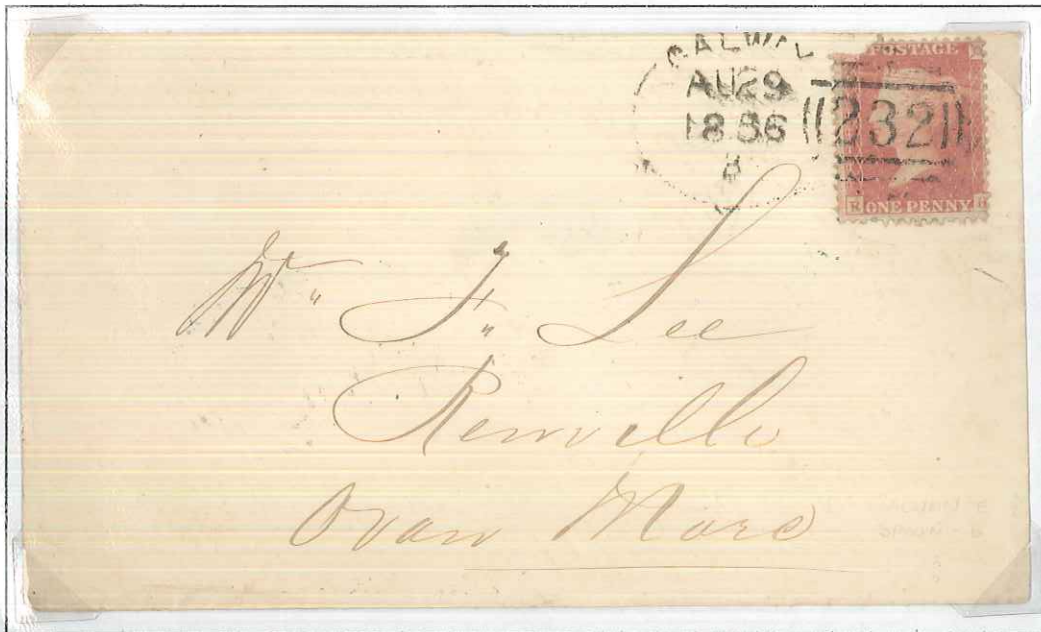 GALWAY
AU29
1856
POSTAGE
232
ONE PENNY
Mr. F. Lee
Renville
Oran More